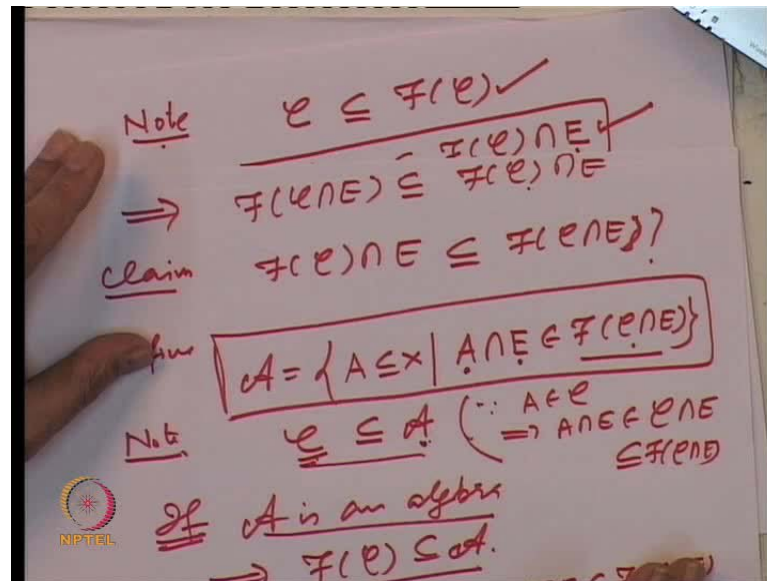 Note 𝒞 ⊆ ℱ(𝒞) ✓
ℱ(𝒞) ∩ E ✓
⇒ ℱ(𝒞∩E) ⊆ ℱ(𝒞) ∩ E
Claim ℱ(𝒞) ∩ E ⊆ ℱ(𝒞∩E)?
𝒜 = {A ⊆ X | A∩E ∈ ℱ(𝒞∩E)}
Note 𝒞 ⊆ 𝒜 (∵ A ∈ 𝒞
⇒ A∩E ∈ 𝒞∩E
⊆ ℱ(𝒞∩E)
If 𝒜 is an algebra
⇒ ℱ(𝒞) ⊆ 𝒜.
NPTEL